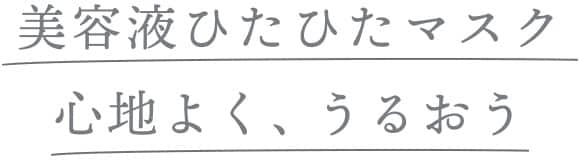 美容液ひたひたマスク
心地よく、うるおう